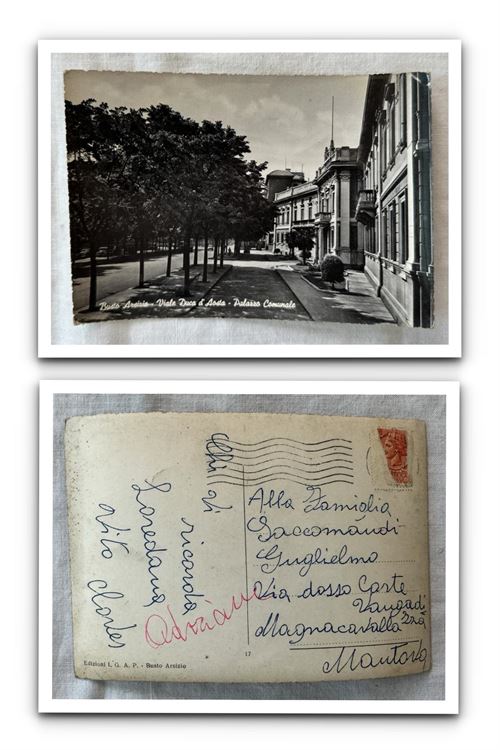 Busto Arsizio - Viale Duca d'Aosta - Palazzo Comunale
Chi vi
ricorda
Loredana
Adriano
Alla Famiglia
Saccomandi
Guglielmo
Via dosso
Magnacavallo
Mantova
17
Edizioni I. G. A. P. - Busto Arsizio